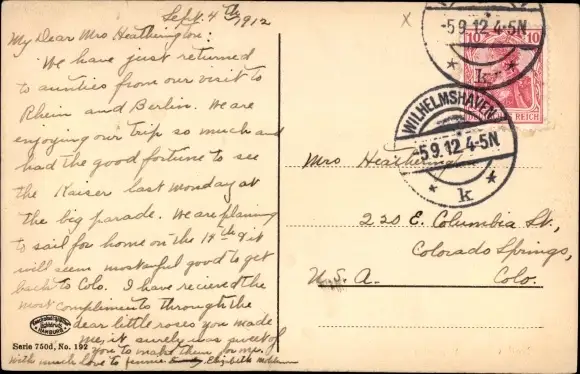 Sept. 4th 1912
My Dear Mrs Heatherington:
We have just returned
to aunties from our visit to
Rhein and Berlin. We are
enjoying our trip so much and
had the good fortune to see
the Kaiser last Monday at
the big parade. We are planing
to sail for home on the 14th & it
will seem good to get
back to Colo. I have recieved the
most compliments through the
dear little roses you made
me, it surely was sweet of
you to make them for me.
With much love to Elizabeth
Serie 750d, No. 192
HAMBURG
x
10 10
REICH
-5.9.12.4-5N
* k *
WILHELMSHAVEN
-5.9.12.4-5N
* k *
Mrs
220 E. Columbia St.,
Colorado Springs,
U.S.A. Colo.